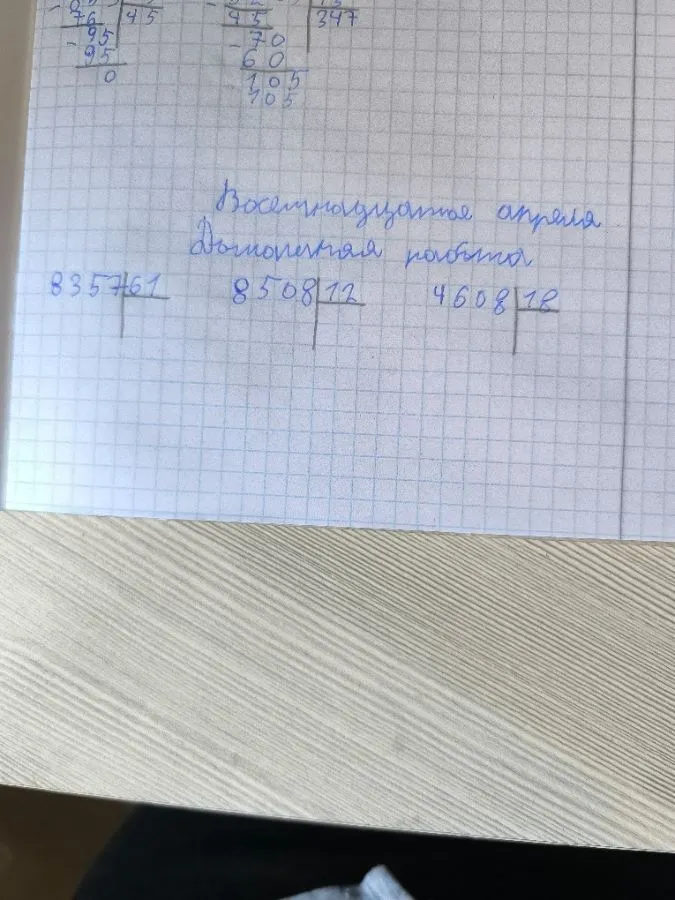 76 45
- 95
95
0
45 347
- 70
60
- 105
105
Восемнадцатое апреля
Домашняя работа
8357 61
8508 12
4608 18